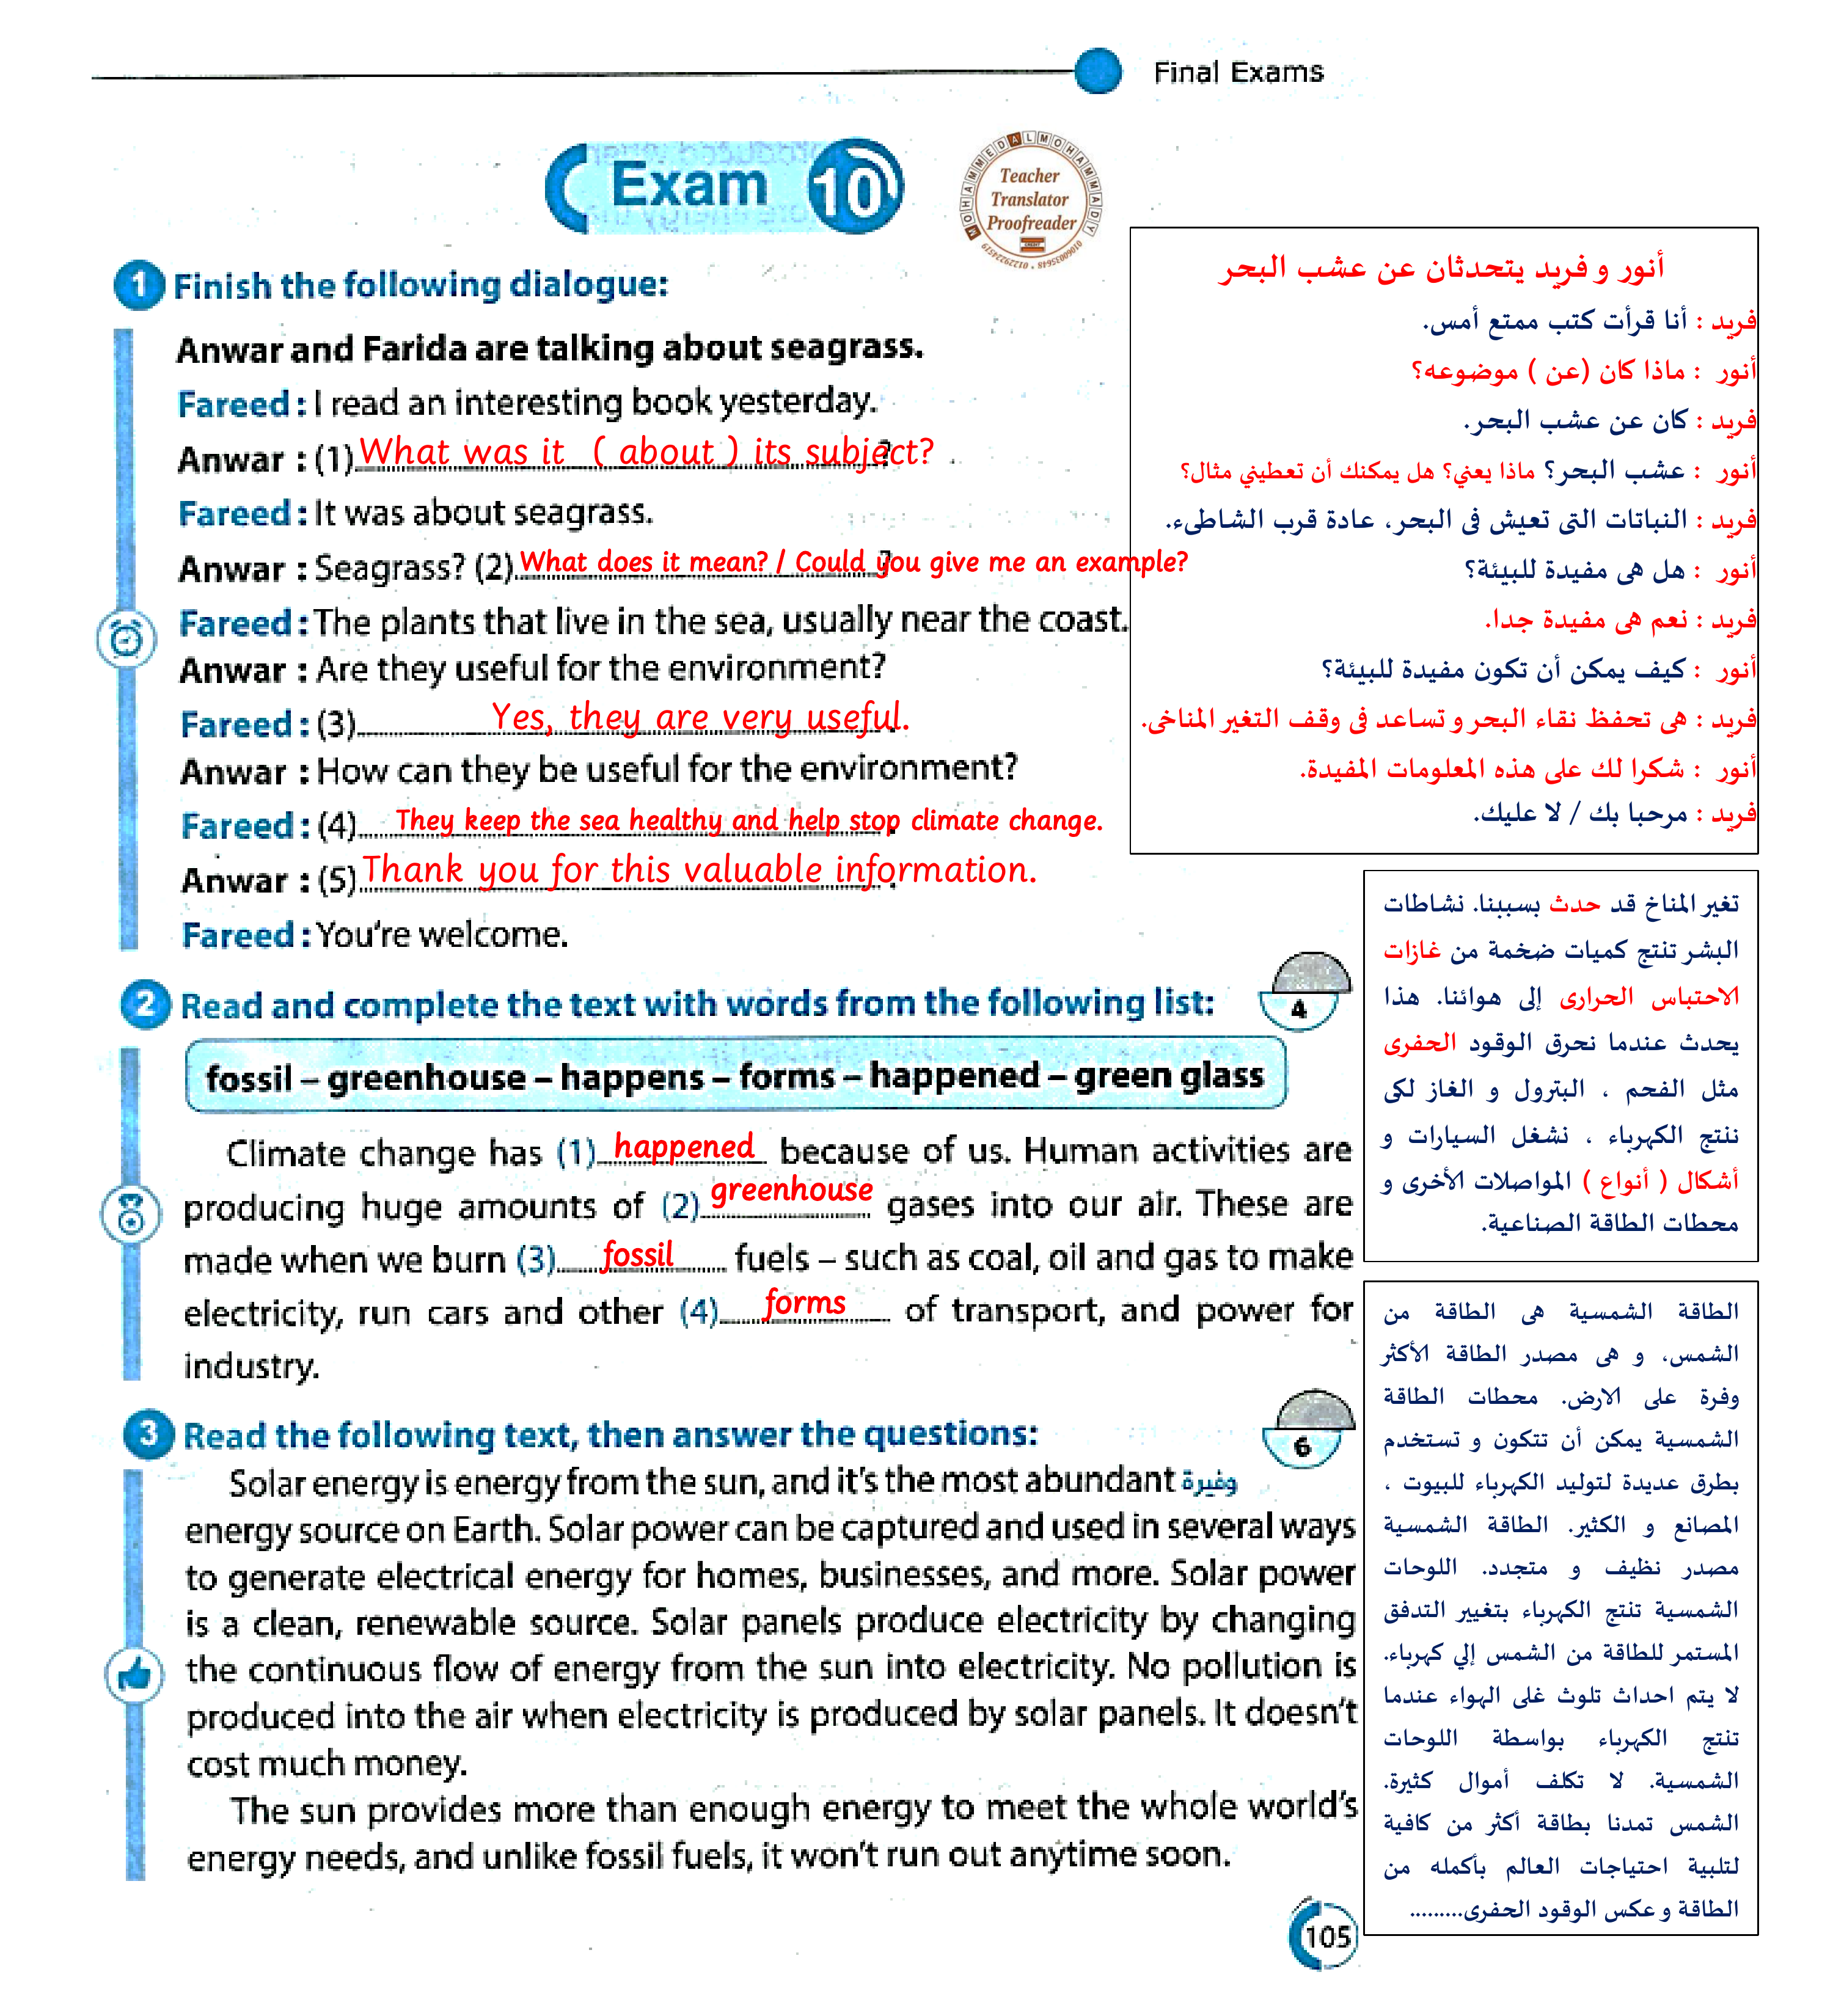 Final Exams
Exam 10
MOHAMMED ALMOHAMMADY
Teacher
Translator
Proofreader
1 Finish the following dialogue:
Anwar and Farida are talking about seagrass.
Fareed : I read an interesting book yesterday.
Anwar : (1) What was it ( about ) its subject?
Fareed : It was about seagrass.
Anwar : Seagrass? (2) What does it mean? / Could you give me an example?
Fareed : The plants that live in the sea, usually near the coast.
Anwar : Are they useful for the environment?
Fareed : (3) Yes, they are very useful.
Anwar : How can they be useful for the environment?
Fareed : (4) They keep the sea healthy and help stop climate change.
Anwar : (5) Thank you for this valuable information.
Fareed : You're welcome.
أنور و فريد يتحدثان عن عشب البحر
فريد : أنا قرأت كتب ممتع أمس.
أنور : ماذا كان (عن ) موضوعه؟
فريد : كان عن عشب البحر.
أنور : عشب البحر؟ ماذا يعني؟ هل يمكنك أن تعطيني مثال؟
فريد : النباتات التى تعيش فى البحر، عادة قرب الشاطىء.
أنور : هل هى مفيدة للبيئة؟
فريد : نعم هى مفيدة جدا.
أنور : كيف يمكن أن تكون مفيدة للبيئة؟
فريد : هى تحفظ نقاء البحر و تساعد فى وقف التغير المناخى.
أنور : شكرا لك على هذه المعلومات المفيدة.
فريد : مرحبا بك / لا عليك.
2 Read and complete the text with words from the following list:
4
fossil – greenhouse – happens – forms – happened – green glass
Climate change has (1) happened because of us. Human activities are
producing huge amounts of (2) greenhouse gases into our air. These are
made when we burn (3) fossil fuels – such as coal, oil and gas to make
electricity, run cars and other (4) forms of transport, and power for
industry.
تغير المناخ قد حدث بسببنا. نشاطات
البشر تنتج كميات ضخمة من غازات
الاحتباس الحرارى إلى هوائنا. هذا
يحدث عندما نحرق الوقود الحفرى
مثل الفحم ، البترول و الغاز لكى
ننتج الكهرباء ، نشغل السيارات و
أشكال ( أنواع ) المواصلات الأخرى و
محطات الطاقة الصناعية.
3 Read the following text, then answer the questions:
6
Solar energy is energy from the sun, and it's the most abundant وفيرة
energy source on Earth. Solar power can be captured and used in several ways
to generate electrical energy for homes, businesses, and more. Solar power
is a clean, renewable source. Solar panels produce electricity by changing
the continuous flow of energy from the sun into electricity. No pollution is
produced into the air when electricity is produced by solar panels. It doesn't
cost much money.
The sun provides more than enough energy to meet the whole world's
energy needs, and unlike fossil fuels, it won't run out anytime soon.
الطاقة الشمسية هى الطاقة من
الشمس، و هى مصدر الطاقة الأكثر
وفرة على الارض. محطات الطاقة
الشمسية يمكن أن تتكون و تستخدم
بطرق عديدة لتوليد الكهرباء للبيوت ،
المصانع و الكثير. الطاقة الشمسية
مصدر نظيف و متجدد. اللوحات
الشمسية تنتج الكهرباء بتغيير التدفق
المستمر للطاقة من الشمس إلي كهرباء.
لا يتم احداث تلوث غلى الهواء عندما
تنتج الكهرباء بواسطة اللوحات
الشمسية. لا تكلف أموال كثيرة.
الشمس تمدنا بطاقة أكثر من كافية
لتلبية احتياجات العالم بأكمله من
الطاقة و عكس الوقود الحفرى.........
105